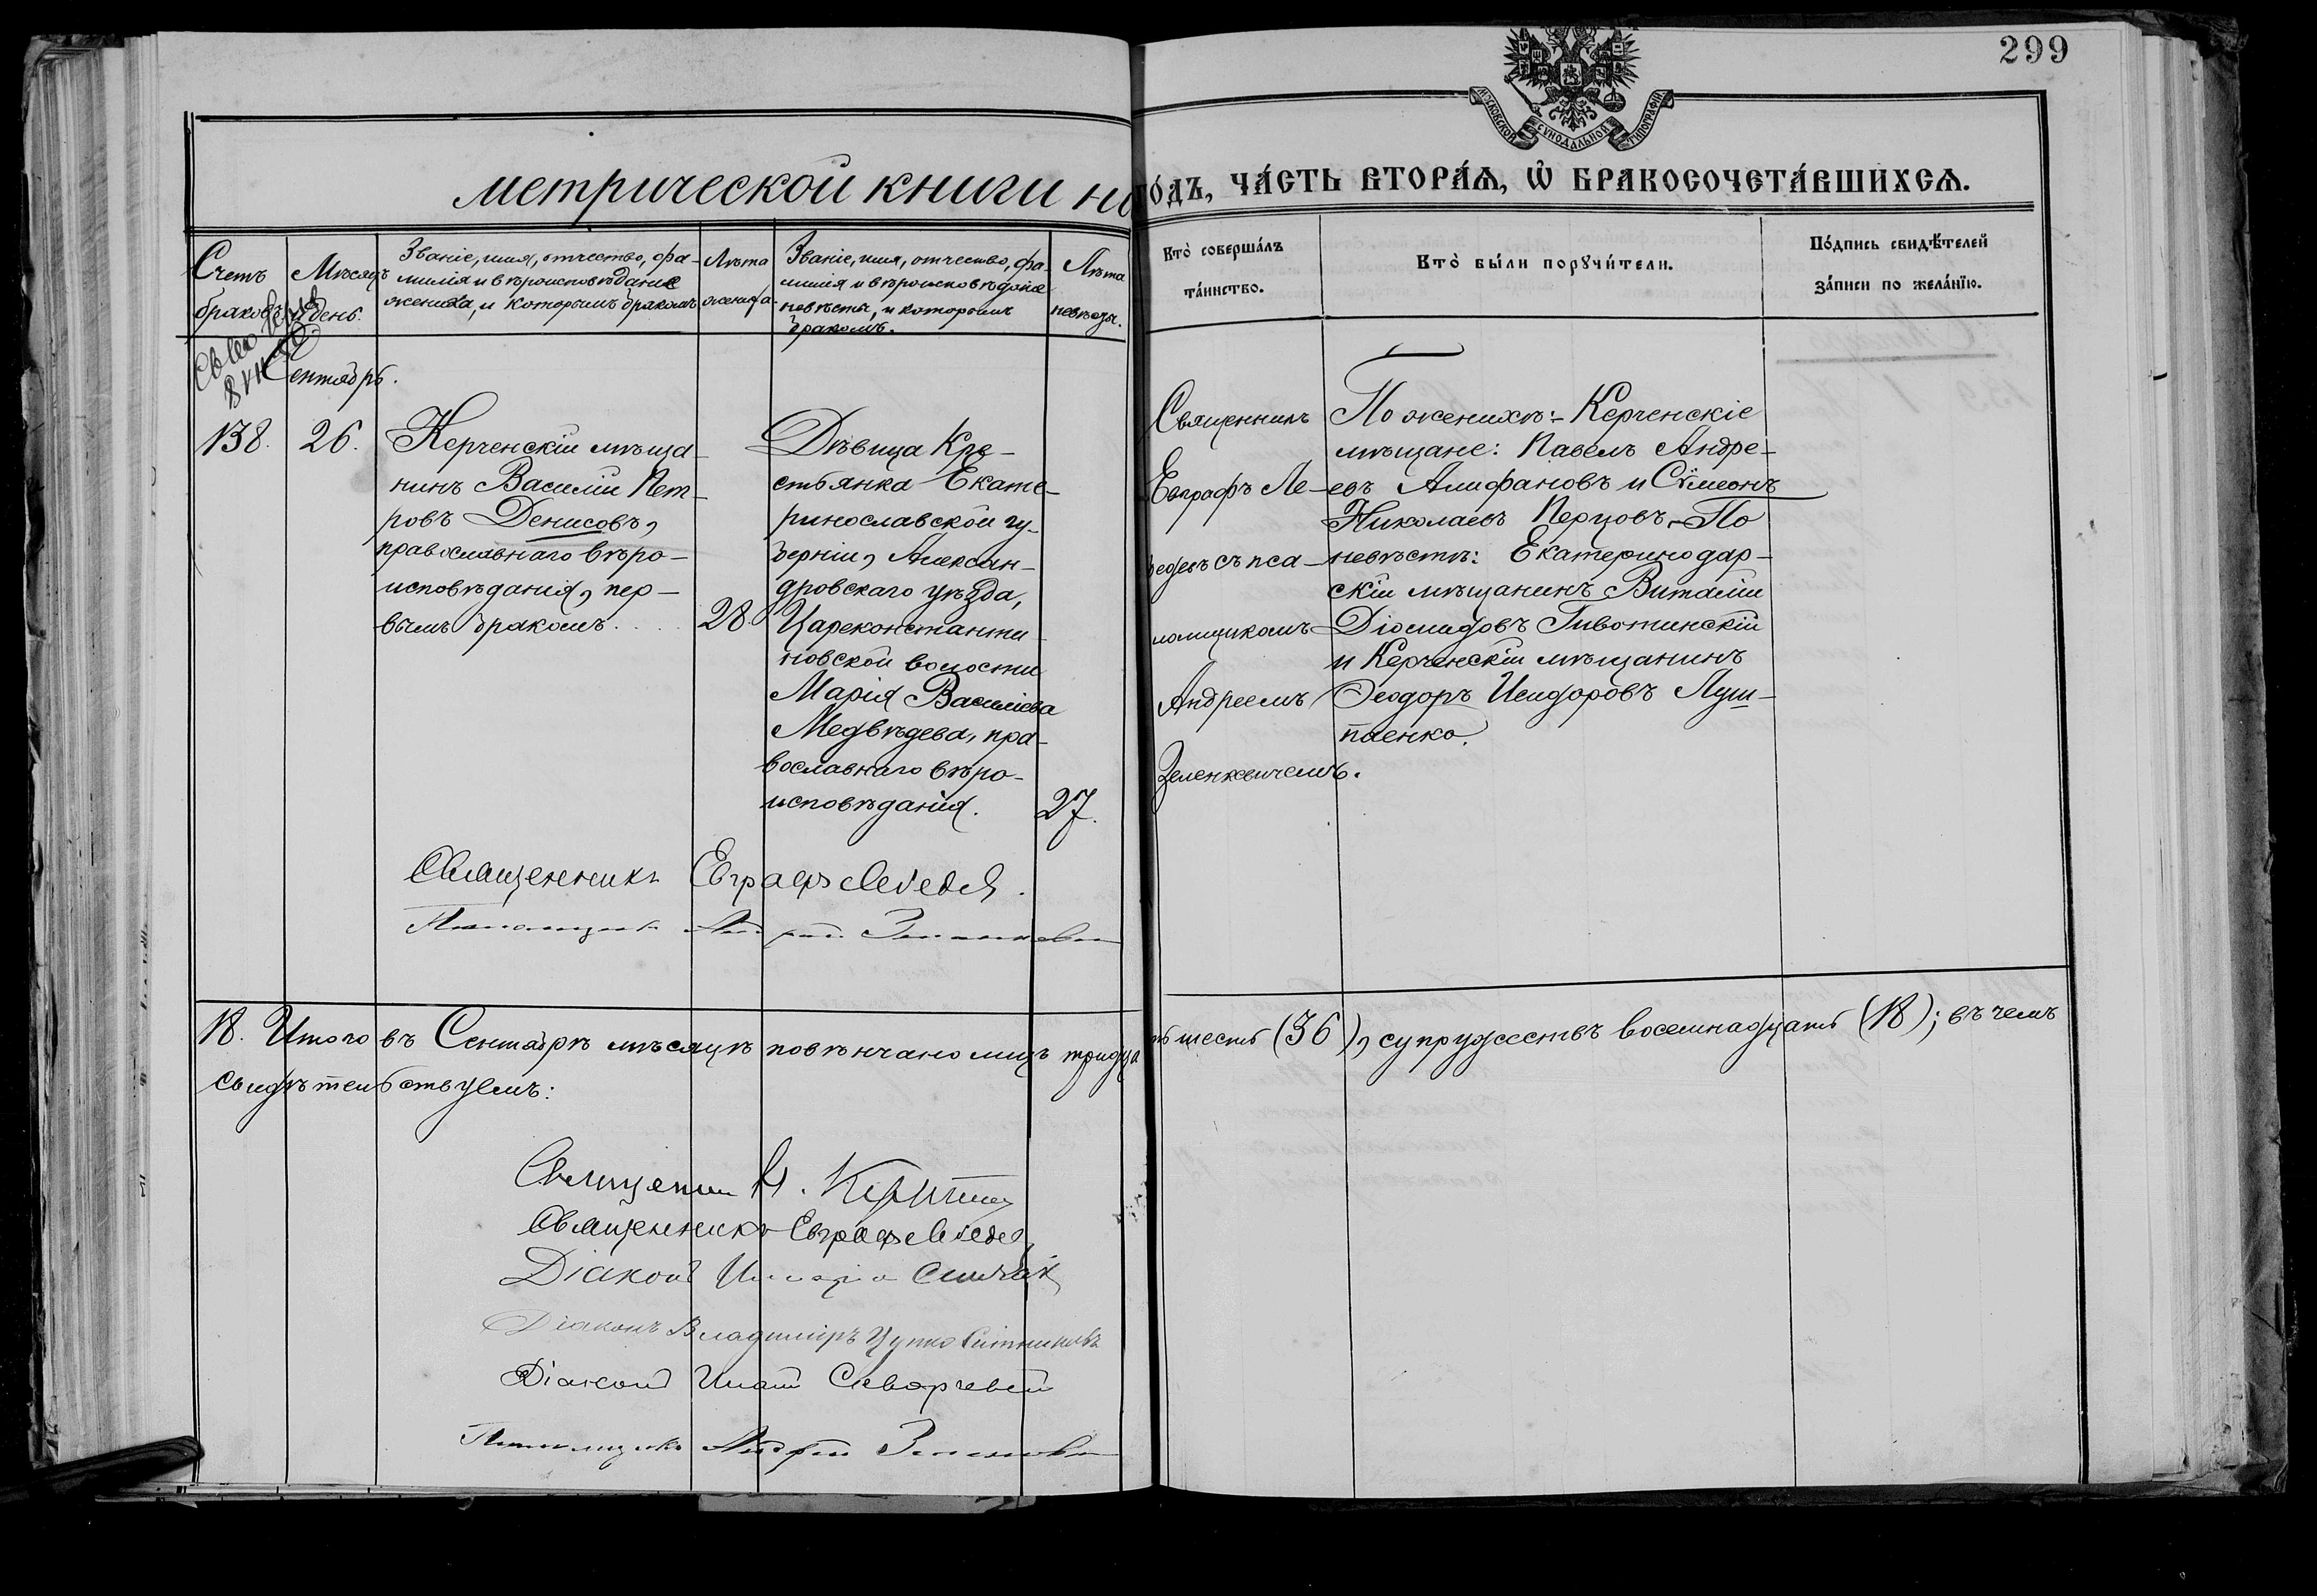 299
МОСКОВСКОЙ СУНОДАЛЬНОЙ ТИПОГРАФІИ
метрической книги на
го́дъ, ча́сть втора́ѧ, ѡ҆ бракосочета́вшихсѧ.
Счетъ браковъ.
Мѣсяцъ и день.
Званіе, имя, отчество, фа-
милія и вѣроисповѣданіе
жениха, и которымъ бракомъ
Лѣта
жениха.
Званіе, имя, отчество, фа-
милія и вѣроисповѣданіе
невѣсты, и которымъ
бракомъ.
Лѣта
невѣсты.
Кто̀ соверша́лъ
та́инство.
Кто̀ бы́ли порꙋчи́тели.
По́дпись свидѣ́телей
за́писи по жела́нїю.
Сентябрь.
138.
26.
Керченскій мѣща-
нинъ Василій Пет-
ровъ Денисовъ,
православнаго вѣро-
исповѣданія, пер-
вымъ бракомъ.
28.
Дѣвица Кре-
стьянка Екате-
ринославской гу-
берніи, Алексан-
дровскаго уѣзда,
Цареконстанти-
новской волости
Марія Василіева
Медвѣдева, пра-
вославнаго вѣро-
исповѣданія.
27.
Священникъ
Евграфъ Ле-
бедевъ съ пса-
ломщикомъ
Андреемъ
Зеленкевичемъ.
По женихѣ:- Керченскіе
мѣщане: Павелъ Андре-
евъ Алифановъ и Сѵмеонъ
Николаевъ Перцовъ,- По
невѣстѣ: Екатеринодар-
скій мѣщанинъ Виталій
Діомидовъ Гивотинскій
и Керченскій мѣщанинъ
Ѳеодоръ Исидоровъ Луш-
паенко.
Священникъ Евграфъ Лебедев.
Псаломщикъ Андрей Зеленкевич
18. Итого въ Сентябрѣ мѣсяцѣ повѣнчано лицъ тридцать шесть (36), супружествъ восемнадцать (18); въ чемъ
свидѣтельствуемъ:
Священник
Священникъ Евграфъ Лебедев
Діаконъ
Діаконъ Владиміръ Цупко Ситниковъ
Діаконъ
Псаломщикъ Андрей Зеленкевич